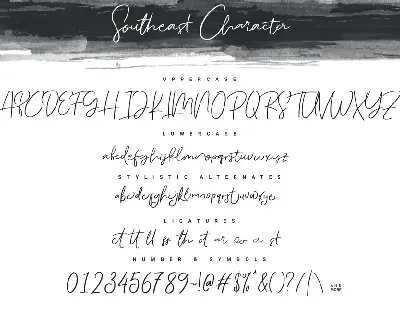 Southeast Character
UPPERCASE
ABCDEFGHIJKLMNOPQRSTUVWXYZ
LOWERCASE
abcdefghijklmnopqrstuvwxyz
STYLISTIC ALTERNATES
abcdefghijklmnopqrstuvwxyz
LIGATURES
tt ll ss th
NUMBER & SYMBOLS
0123456789~!@#$%^&()?/|\
AND MORE